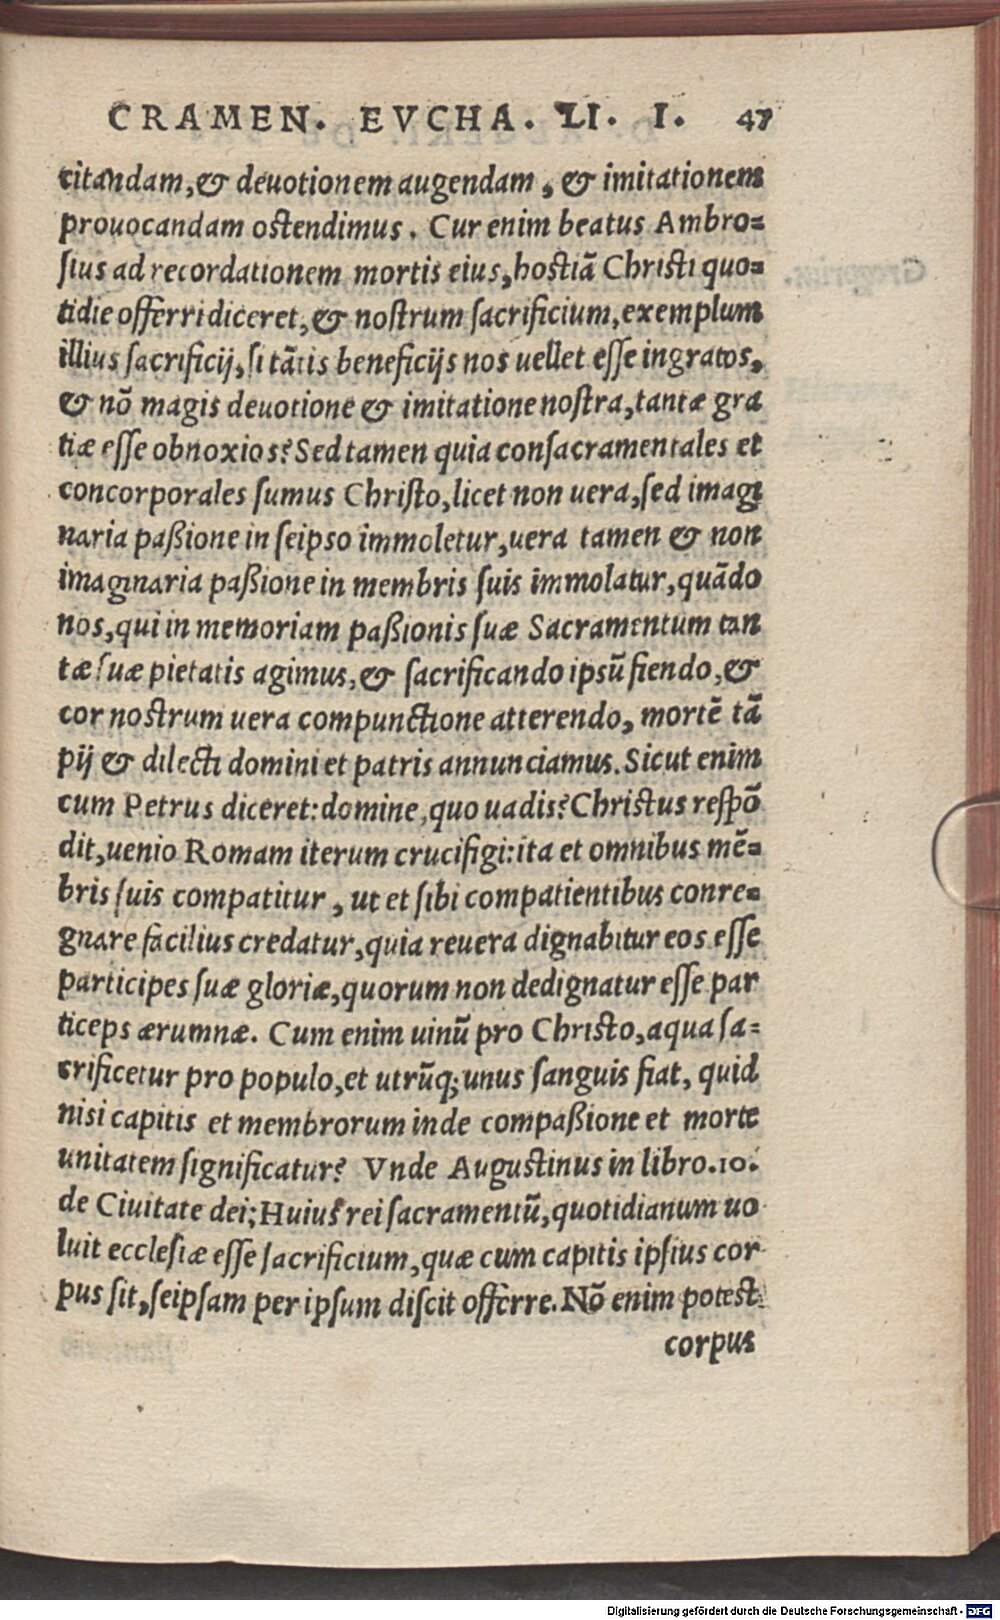 CRAMEN. EVCHA. LI. I. 47
citandam, & deuotionem augendam, & imitationem
prouocandam ostendimus. Cur enim beatus Ambro=
sius ad recordationem mortis eius, hostiā Christi quo=
tidie offerri diceret, & nostrum sacrificium, exemplum
illius sacrificij, si tātis beneficijs nos uellet esse ingratos,
& nō magis deuotione & imitatione nostra, tantæ gra
tiæ esse obnoxios? Sed tamen quia consacramentales et
concorporales sumus Christo, licet non uera, sed imagi
naria paßione in seipso immoletur, uera tamen & non
imaginaria paßione in membris suis immolatur, quādo
nos, qui in memoriam paßionis suæ Sacramentum tan
tæ suæ pietatis agimus, & sacrificando ipsū fiendo, &
cor nostrum uera compunctione atterendo, mortē tā
pij & dilecti domini et patris annunciamus. Sicut enim
cum Petrus diceret: domine, quo uadis? Christus respō
dit, uenio Romam iterum crucifigi: ita et omnibus mē=
bris suis compatitur, ut et sibi compatientibus conre=
gnare facilius credatur, quia reuera dignabitur eos esse
participes suæ gloriæ, quorum non dedignatur esse par
ticeps ærumnæ. Cum enim uinū pro Christo, aqua sa=
crificetur pro populo, et utrūq; unus sanguis fiat, quid
nisi capitis et membrorum inde compaßione et morte
unitatem significatur? Vnde Augustinus in libro .10.
de Ciuitate dei; Huius rei sacramentū, quotidianum uo
luit ecclesiæ esse sacrificium, quæ cum capitis ipsius cor
pus sit, seipsam per ipsum discit offerre. Nō enim potest
corpus
Digitalisierung gefördert durch die Deutsche Forschungsgemeinschaft - DFG